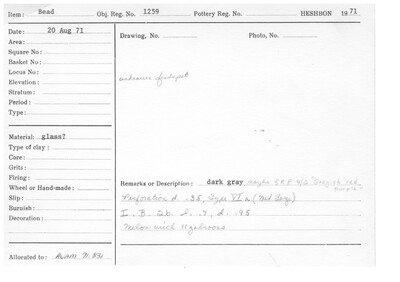 Item: Bead Obj. Reg. No. 1259 Pottery Reg. No. HESHBON 1971
Date: 20 Aug 71 Drawing, No. Photo, No.
Area:
Square No:
Basket No:
Locus No:
Elevation: unknown findspot
Stratum:
Period:
Type:
Material: glass?
Type of clay:
Core:
Grits:
Firing:
Wheel or Hand-made: Remarks or Description: dark gray maybe 5RP 4/2 Grayish red purple
Slip: Perforation d. .35, Type VI a (Med large)
Burnish: I. B. 2b. l. .7, d. .95
Decoration: Melon with 11 gadroons
Allocated to: